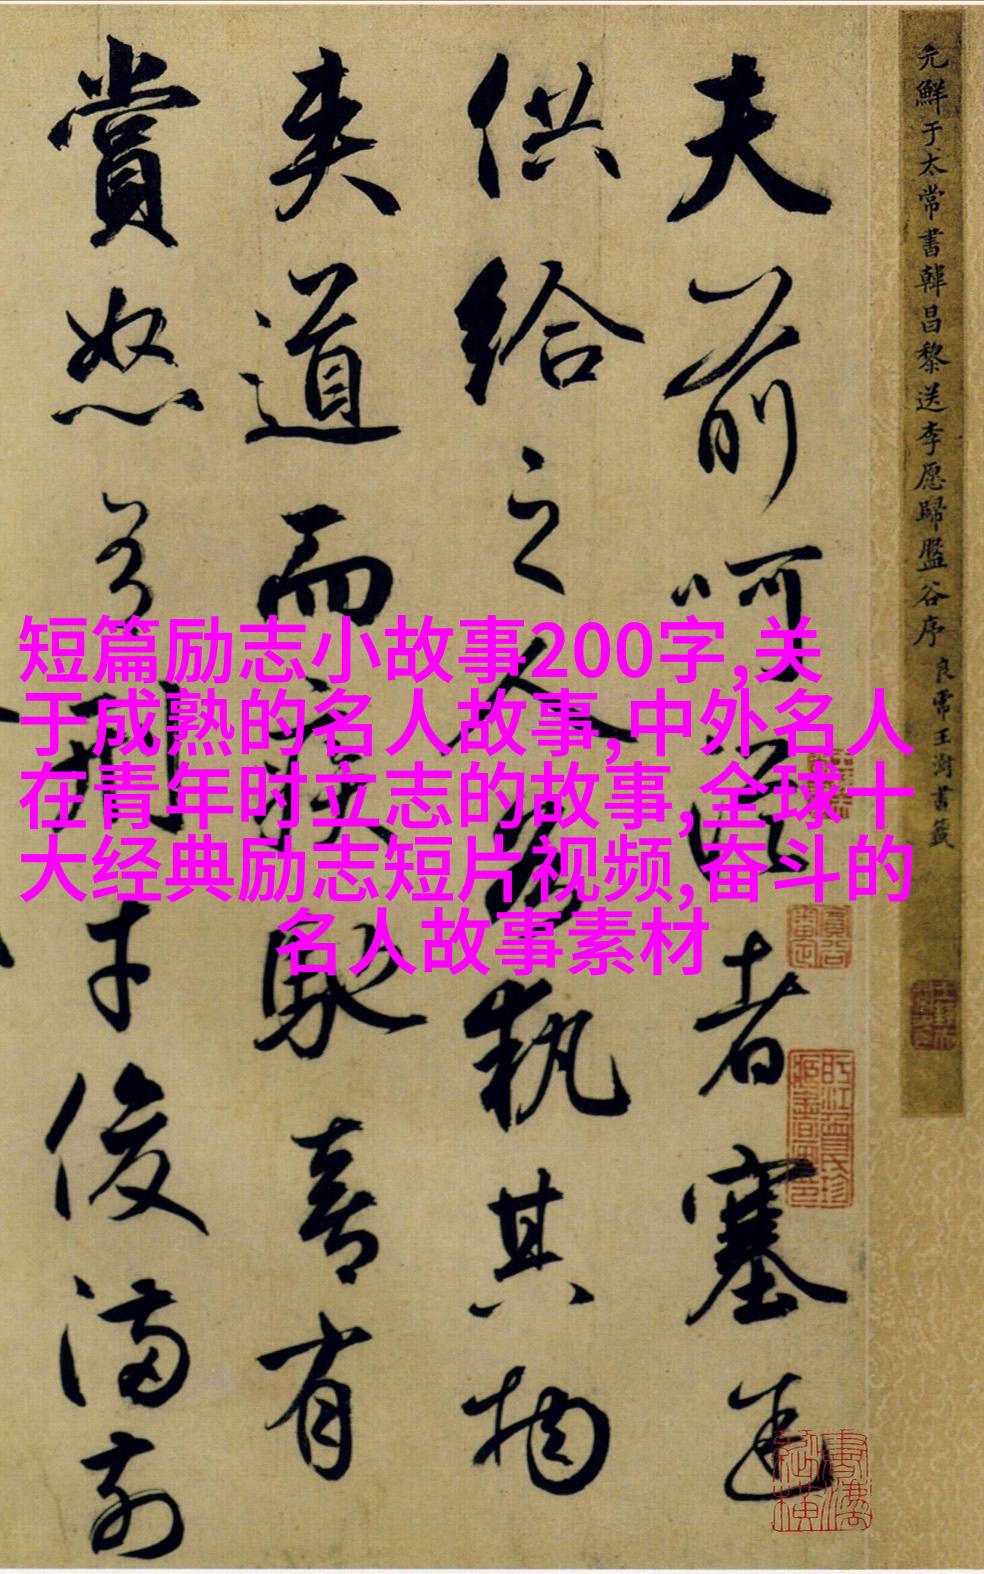 元鮮于太常書韓昌黎送李愿歸盤谷序 良常王澍書籤
夫前呵從者塞途
供給之人各執其物
夾道而疾馳喜有
賞怒有刑才俊滿前
短篇励志小故事200字,关
于成熟的名人故事,中外名人
在青年时立志的故事,全球十
大经典励志短片视频,奋斗的
名人故事素材